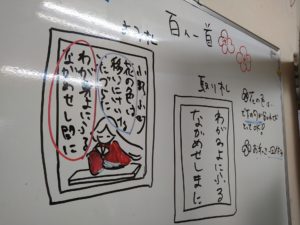 百人一首
小野小町
花の色は
移りにけりな
いたづらに
わが身よにふる
ながめせし間に
取り札
わがみよにふる
ながめせしまに
花の色は